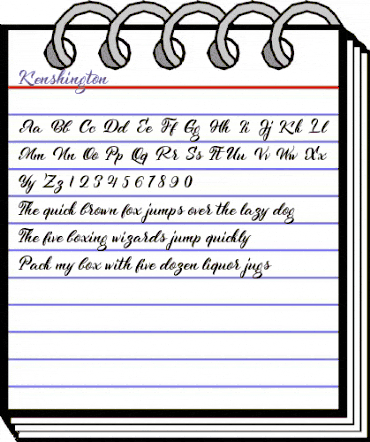 Kenshington
Aa Bb Cc Dd Ee Ff Gg Hh Ii Jj Kk Ll
Mm Nn Oo Pp Qq Rr Ss Tt Uu Vv Ww Xx
Yy Zz 1 2 3 4 5 6 7 8 9 0
The quick brown fox jumps over the lazy dog
The five boxing wizards jump quickly
Pack my box with five dozen liquor jugs